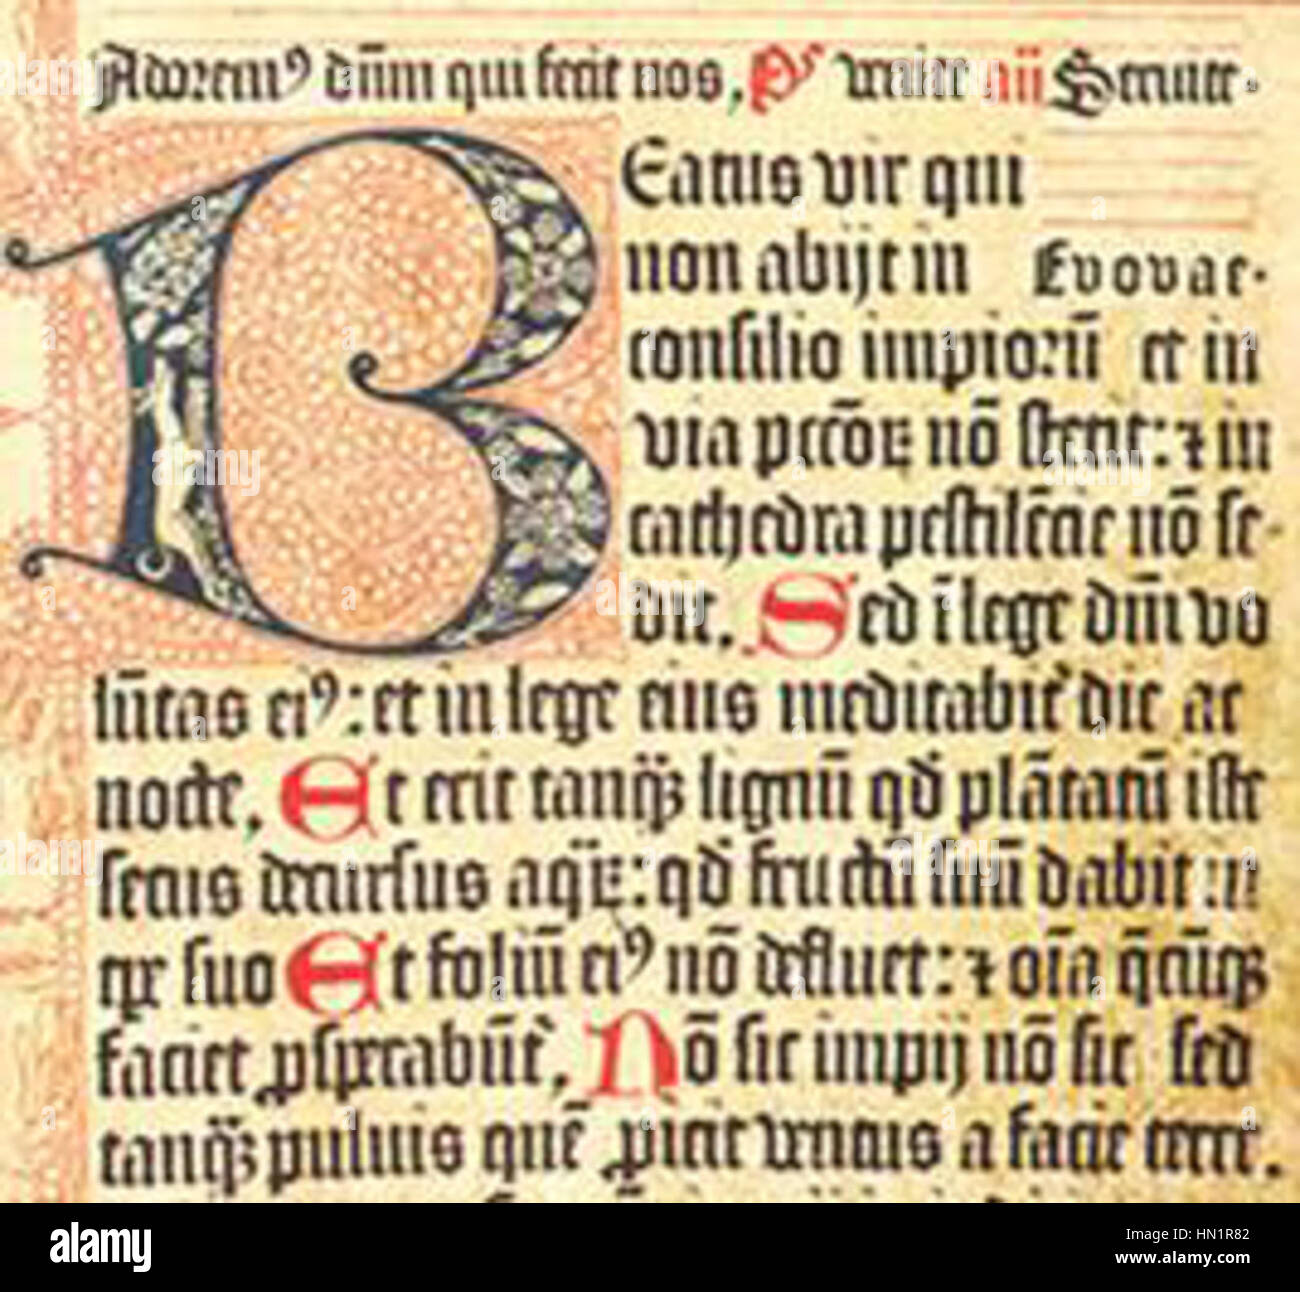 Adorem⁹ dn̄m qui fecit nos, Ps Venite aii Seruite.
BEatus vir qui
non abijt in Evovae.
consilio impioꝝū et in
via pccōꝝ nō stetit: ⁊ in
cathedra pestilēcie nō se-
dit. Sed ī lege dn̄i vo
lūtas ei⁹: et in lege eius meditabit̄ die ac
nocte. Et erit tanq̄ꝫ lignū qd̄ plātatū iste
secus decursus aqꝝ: qd̄ fructū suū dabit in
tꝑe suo Et foliū ei⁹ nō defluet: ⁊ oīa q̄cūqꝫ
faciet ꝓsꝑabūt̄. Nō sic impij nō sic sed
tanq̄ꝫ puluis quē ꝓicit ventus a facie terre.
alamy stock photo
HN1R82
www.alamy.com